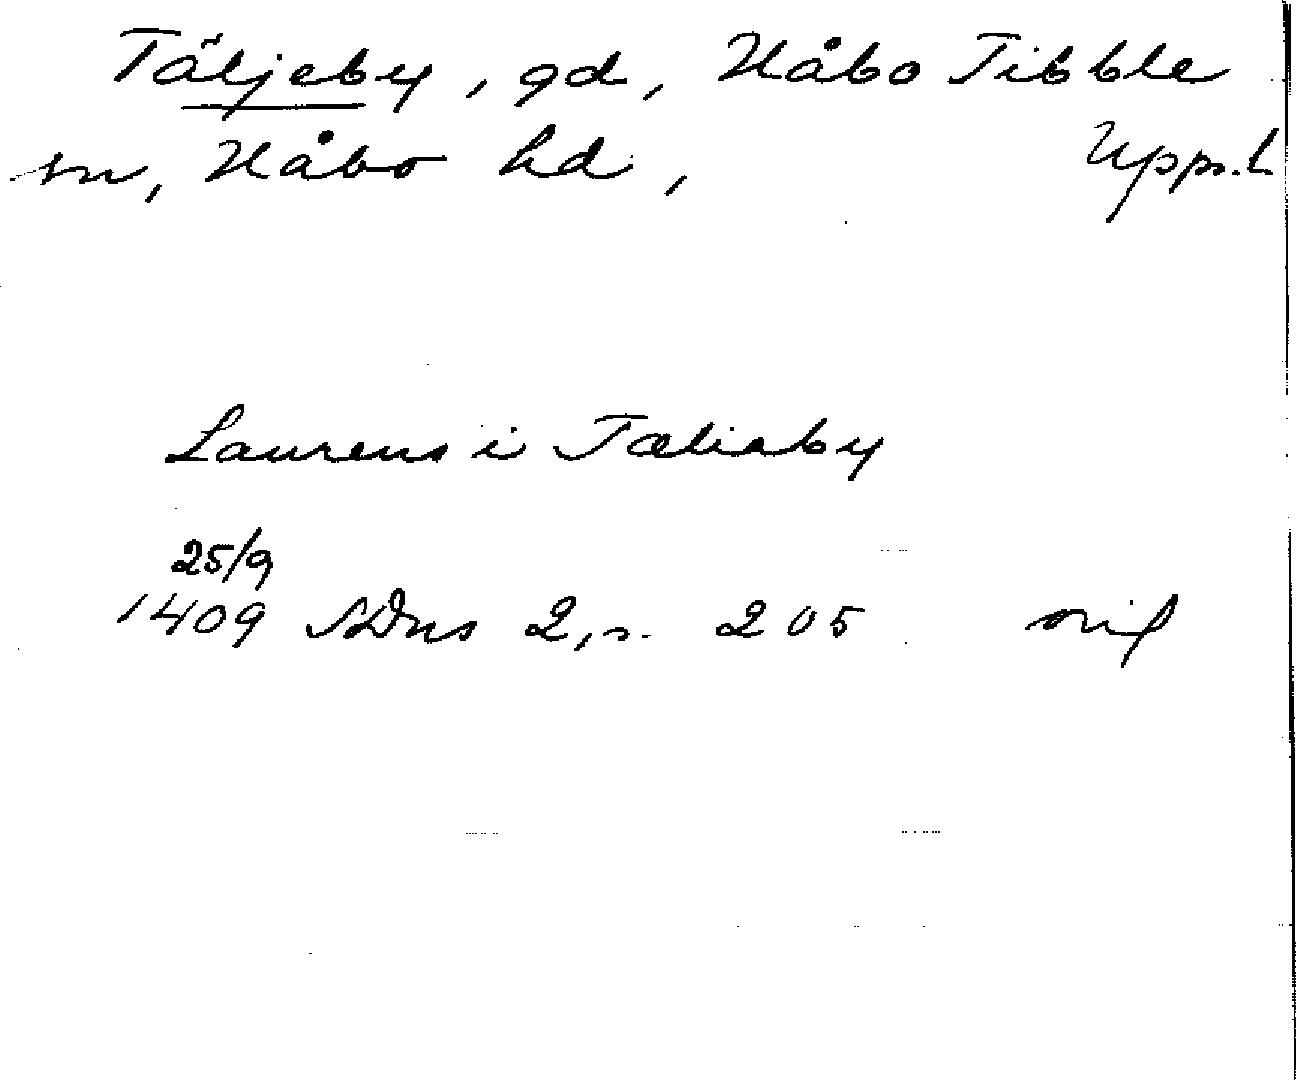 Täljeby, gd, Håbo Tibble
sn, Håbo hd, Upps. l
Laurens i Tæliaby
25/9
1409 SDns 2, s. 205 orig